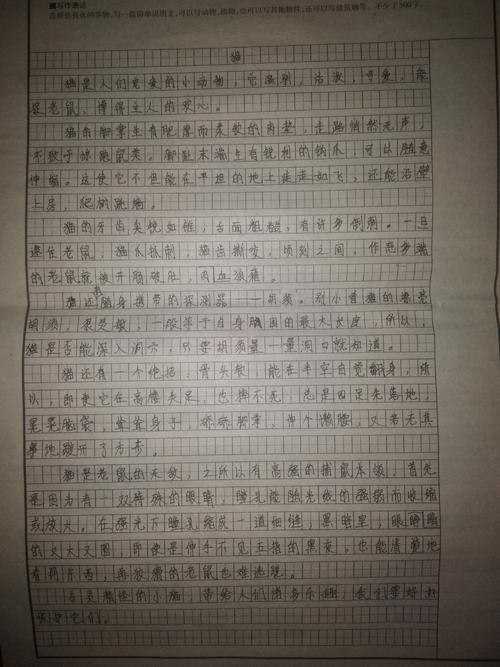 ■写作表达
选择你喜欢的事物,写一篇简单说明文,可以写动物、植物,也可以写其他物件,还可以写建筑物等。不少于500字。
猫
猫是人们宠爱的小动物,它温驯,活泼,可爱,能
捉老鼠,博得主人的欢心。
猫的脚掌生有肥厚而柔软的肉垫,走路悄然无声,
不致于惊跑鼠类。脚趾末端生有锐利的钩爪,可以随意
伸缩。这使它不但能在平坦的地上徒走如飞,还能沿壁
上房,爬树跳墙。
猫的牙齿尖锐如锥,舌面粗糙,有许多倒刺。一旦
逮住老鼠,猫爪抓刺,猫齿撕咬,顷刻之间,作恶多端
的老鼠就被开膛破肚,肉血狼藉。
猫还有随身携带的探测器——胡须。别小看猫的
胡须,很是敏,一般等于自身胸围的最大长度,所以,
猫是否能深入洞穴,只要胡须量一量洞口就知道。
猫还有一个绝招,骨头软,能在半空自觉翻身,所
以,即使它在高楼失足,也摔不死,总是四足先落地,
晃晃脑袋,耸耸身子,舔舔脚掌,伸个懒腰,又若无其
事地踱开了方步。
猫是老鼠的天敌,之所以有高强的捕鼠本领,首先
是因为有一双特殊的眼睛,瞳孔能随光线的强弱而收缩
或放大。在强光下瞳孔缩成一道细缝;黑暗里,眼睛
的又大又圆,即使是伸手不见五指的黑夜,也能清楚地
看到东西,再狡猾的老鼠也难逃脱。
古灵精怪的小猫,带给人们诸多乐趣,我们要好好
保护它们。